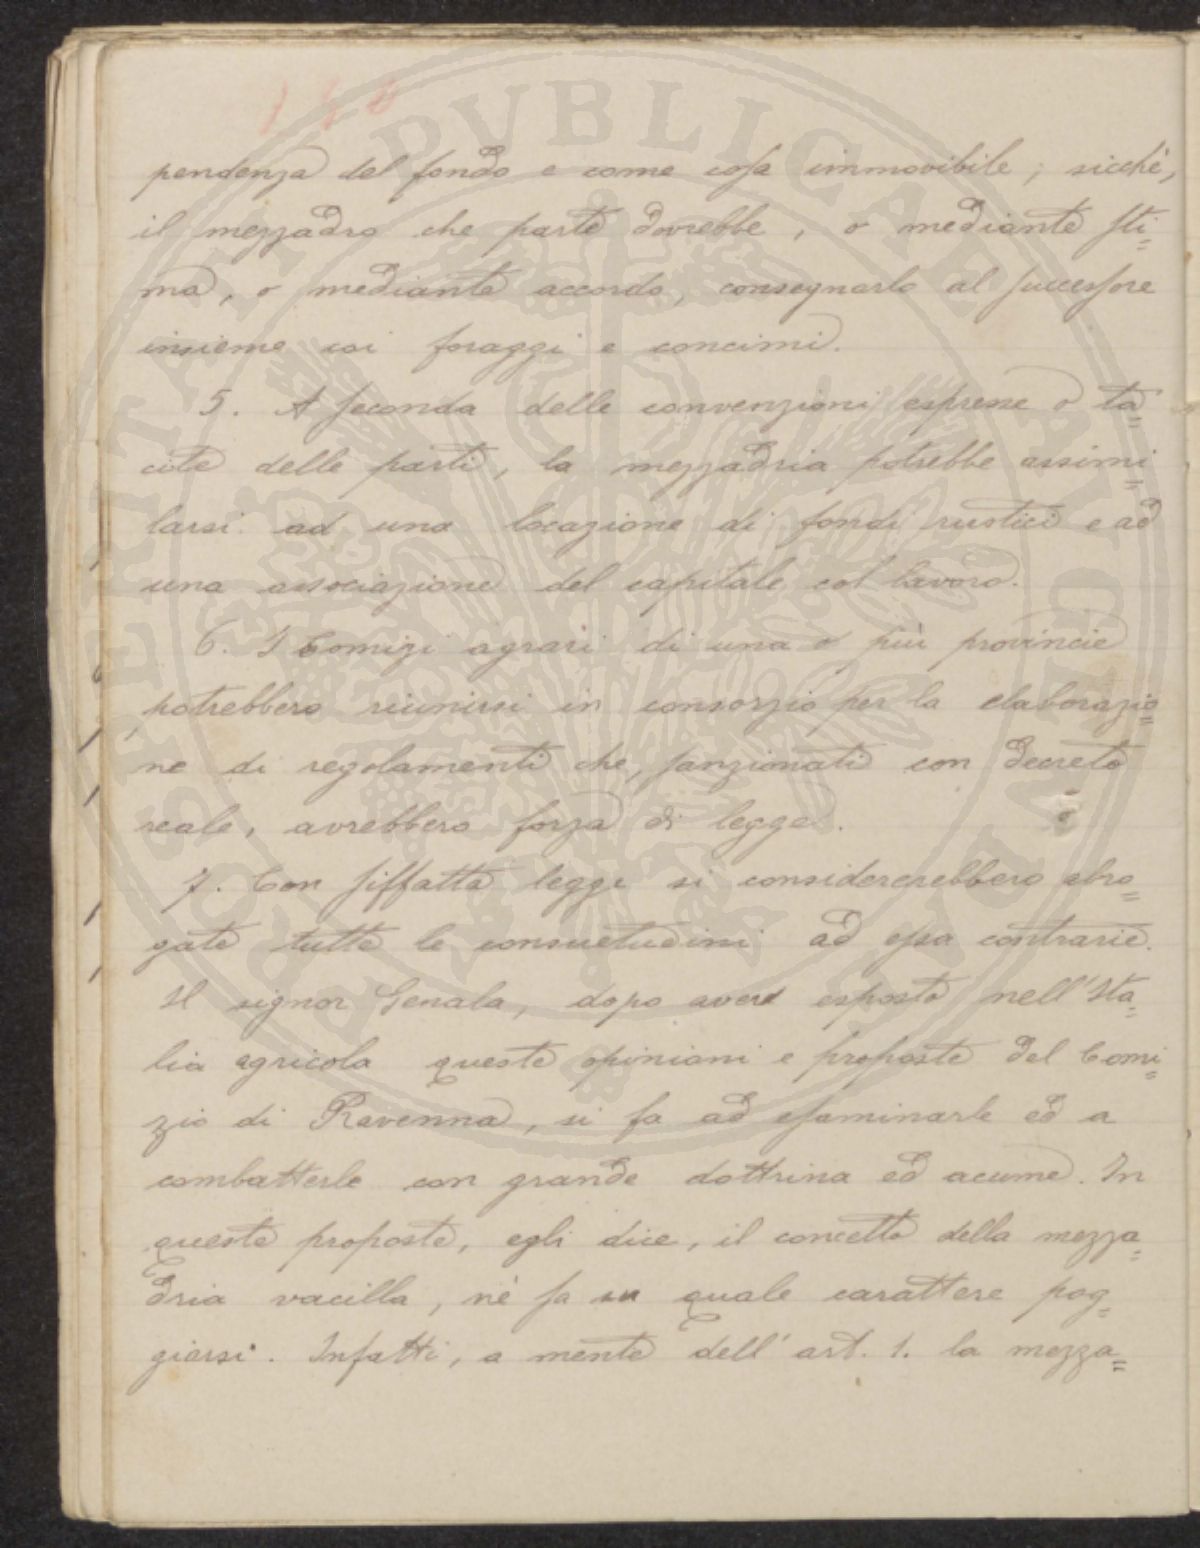 pendenza del fondo e come cosa immovibile; sicchè,
il mezzadro che parte dovrebbe, o mediante sti=
ma, o mediante accordo, consegnarlo al successore
insieme coi foraggi e concimi.
5. A seconda delle convenzioni espresse o ta=
cite delle parti, la mezzadria potrebbe assimi=
larsi ad una locazione di fondi rustici e ad
una associazione del capitale col lavoro.
6. I Comizi agrari di una o più provincie
potrebbero riunirsi in consorzio per la elaborazio=
ne di regolamenti che, sanzionati con decreto
reale, avrebbero forza di legge.
7. Con siffatta legge si considererebbero abro=
gate tutte le consuetudini ad essa contrarie.
Il signor Genala, dopo avere esposto nell'Ita=
lia agricola queste opinioni e proposte del Comi=
zio di Ravenna, si fa ad esaminarle ed a
combatterle con grande dottrina ed acume. In
queste proposte, egli dice, il concetto della mezza=
dria vacilla, nè sa su quale carattere pog=
giarsi. Infatti, a mente dell'art. 1. la mezza=